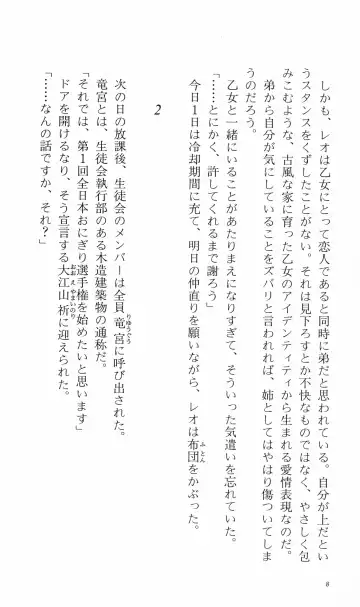 しかも、レオは乙女にとって恋人であると同時に弟だと思われている。自分が上だとい
うスタンスをくずしたことがない。それは見下ろすとか不快なものではなく、やさしく包
みこむような、古風な家に育った乙女のアイデンティティから生まれる愛情表現なのだ。
弟から自分が気にしていることをズバリと言われれば、姉としてはやはり傷ついてしま
うのだろう。
乙女と一緒にいることがあたりまえになりすぎて、そういった気遣いを忘れていた。
「……とにかく、許してくれるまで謝ろう」
今日1日は冷却期間に充て、明日の仲直りを願いながら、レオは布団をかぶった。
2
次の日の放課後、生徒会のメンバーは全員竜宮に呼び出された。
竜宮とは、生徒会執行部のある木造建築物の通称だ。
「それでは、第1回全日本おにぎり選手権を始めたいと思います」
ドアを開けるなり、そう宣言する大江山祈に迎えられた。
「……なんの話ですか、それ?」
8